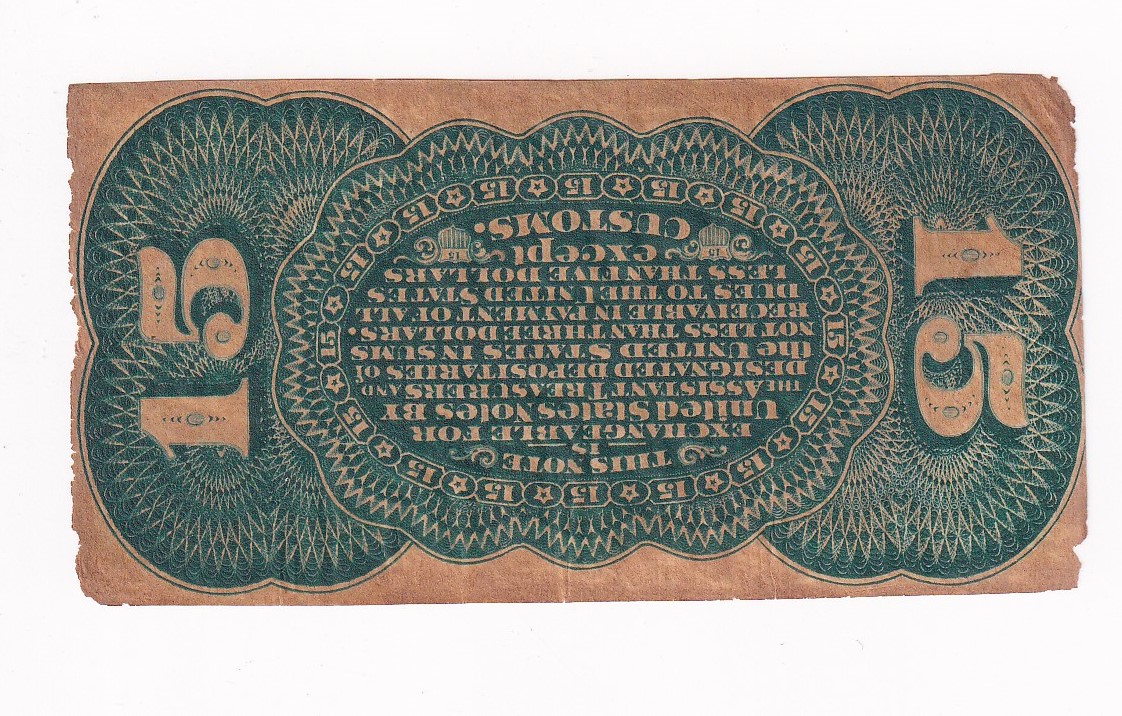 THIS NOTE
IS
EXCHANGEABLE FOR
United States Notes BY
THE ASSISTANT TREASURERS AND
DESIGNATED DEPOSITARIES of
the UNITED STATES IN SUMS
NOT LESS THAN THREE DOLLARS.
RECEIVABLE IN PAYMENT OF ALL
DUES TO THE UNITED STATES
LESS THAN FIVE DOLLARS
except
CUSTOMS.
15
15
15 15 15 15 15 15 15 15 15 15 15 15 15 15 15 15 15 15 15 15
15
15